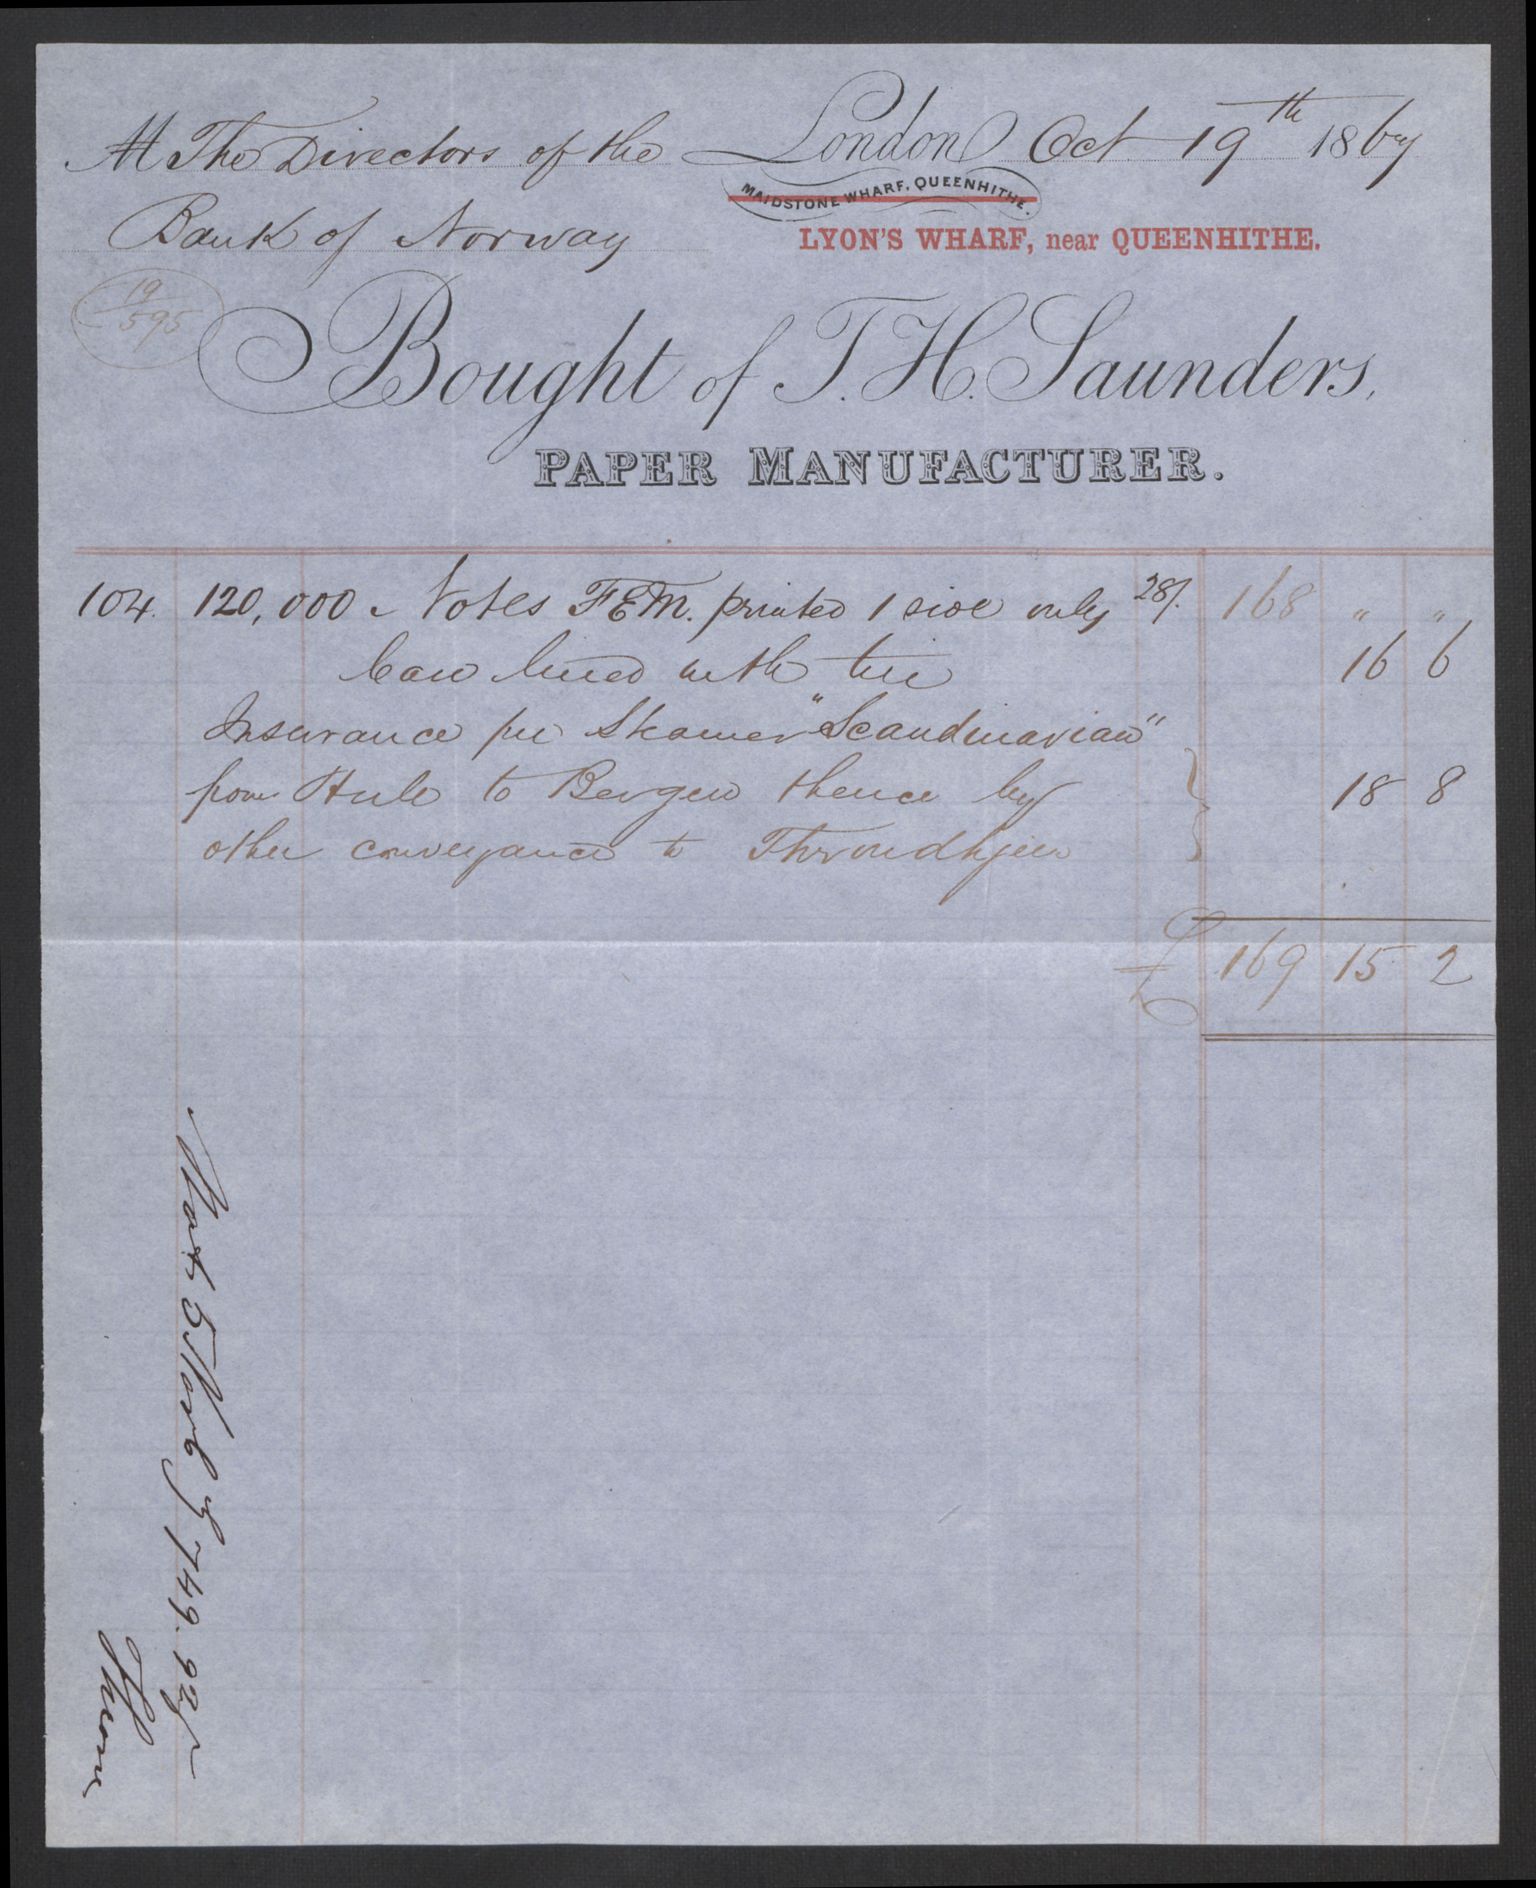 M The Directors of the London Oct 19th 1867
MAIDSTONE WHARF, QUEENHITHE.
Bank of Norway
LYON'S WHARF, near QUEENHITHE.
19/595
Bought of T. H. Saunders,
PAPER MANUFACTURER.
104. 120,000 Notes FEM. printed 1 side only 28/. 168 " "
Case lined with tin 16 6
Insurance per Steamer "Scandinavian"
from Hull to Bergen thence by 18 8
other conveyance to Throndhjem
£ 169 15 2
5 749. 92